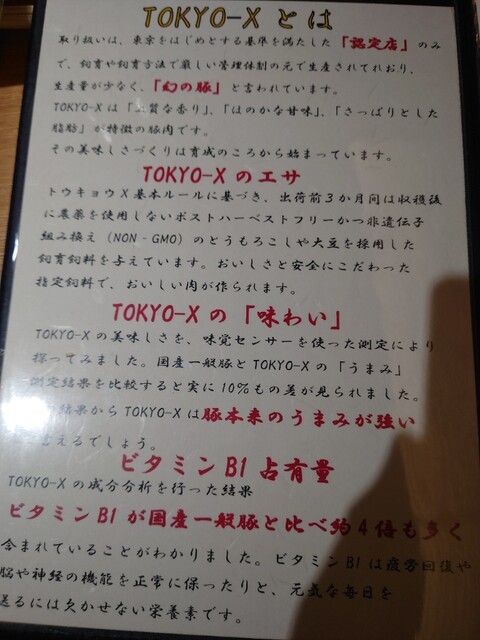 TOKYO-X とは
取り扱いは、東京をはじめとする基準を満たした「認定店」のみ
で、飼育や飼育方法で厳しい管理体制の元で生産されてれおり、
生産量が少なく、「幻の豚」と言われています。
TOKYO-X は「上質な香り」、「ほのかな甘味」、「さっぱりとした
脂肪」が特徴の豚肉です。
その美味しさづくりは育成のころから始まっています。
TOKYO-X のエサ
トウキョウX基本ルールに基づき、出荷前3か月間は収穫後
に農薬を使用しないポストハーベストフリーかつ非遺伝子
組み換え（NON‐GMO）のとうもろこしや大豆を採用した
飼育飼料を与えています。おいしさと安全にこだわった
指定飼料で、おいしい肉が作られます。
TOKYO-X の「味わい」
TOKYO-X の美味しさを、味覚センサーを使った測定により
探ってみました。国産一般豚と TOKYO-X の「うまみ」
測定結果を比較すると実に 10%もの差が見られました。
結果から TOKYO-X は豚本来のうまみが強い
言えるでしょう。
ビタミン B1 占有量
TOKYO-X の成分分析を行った結果
ビタミン B1 が国産一般豚と比べ約４倍も多く
含まれていることがわかりました。ビタミン B1 は疲労回復や
脳や神経の機能を正常に保ったりと、元気な毎日を
送るには欠かせない栄養素です。